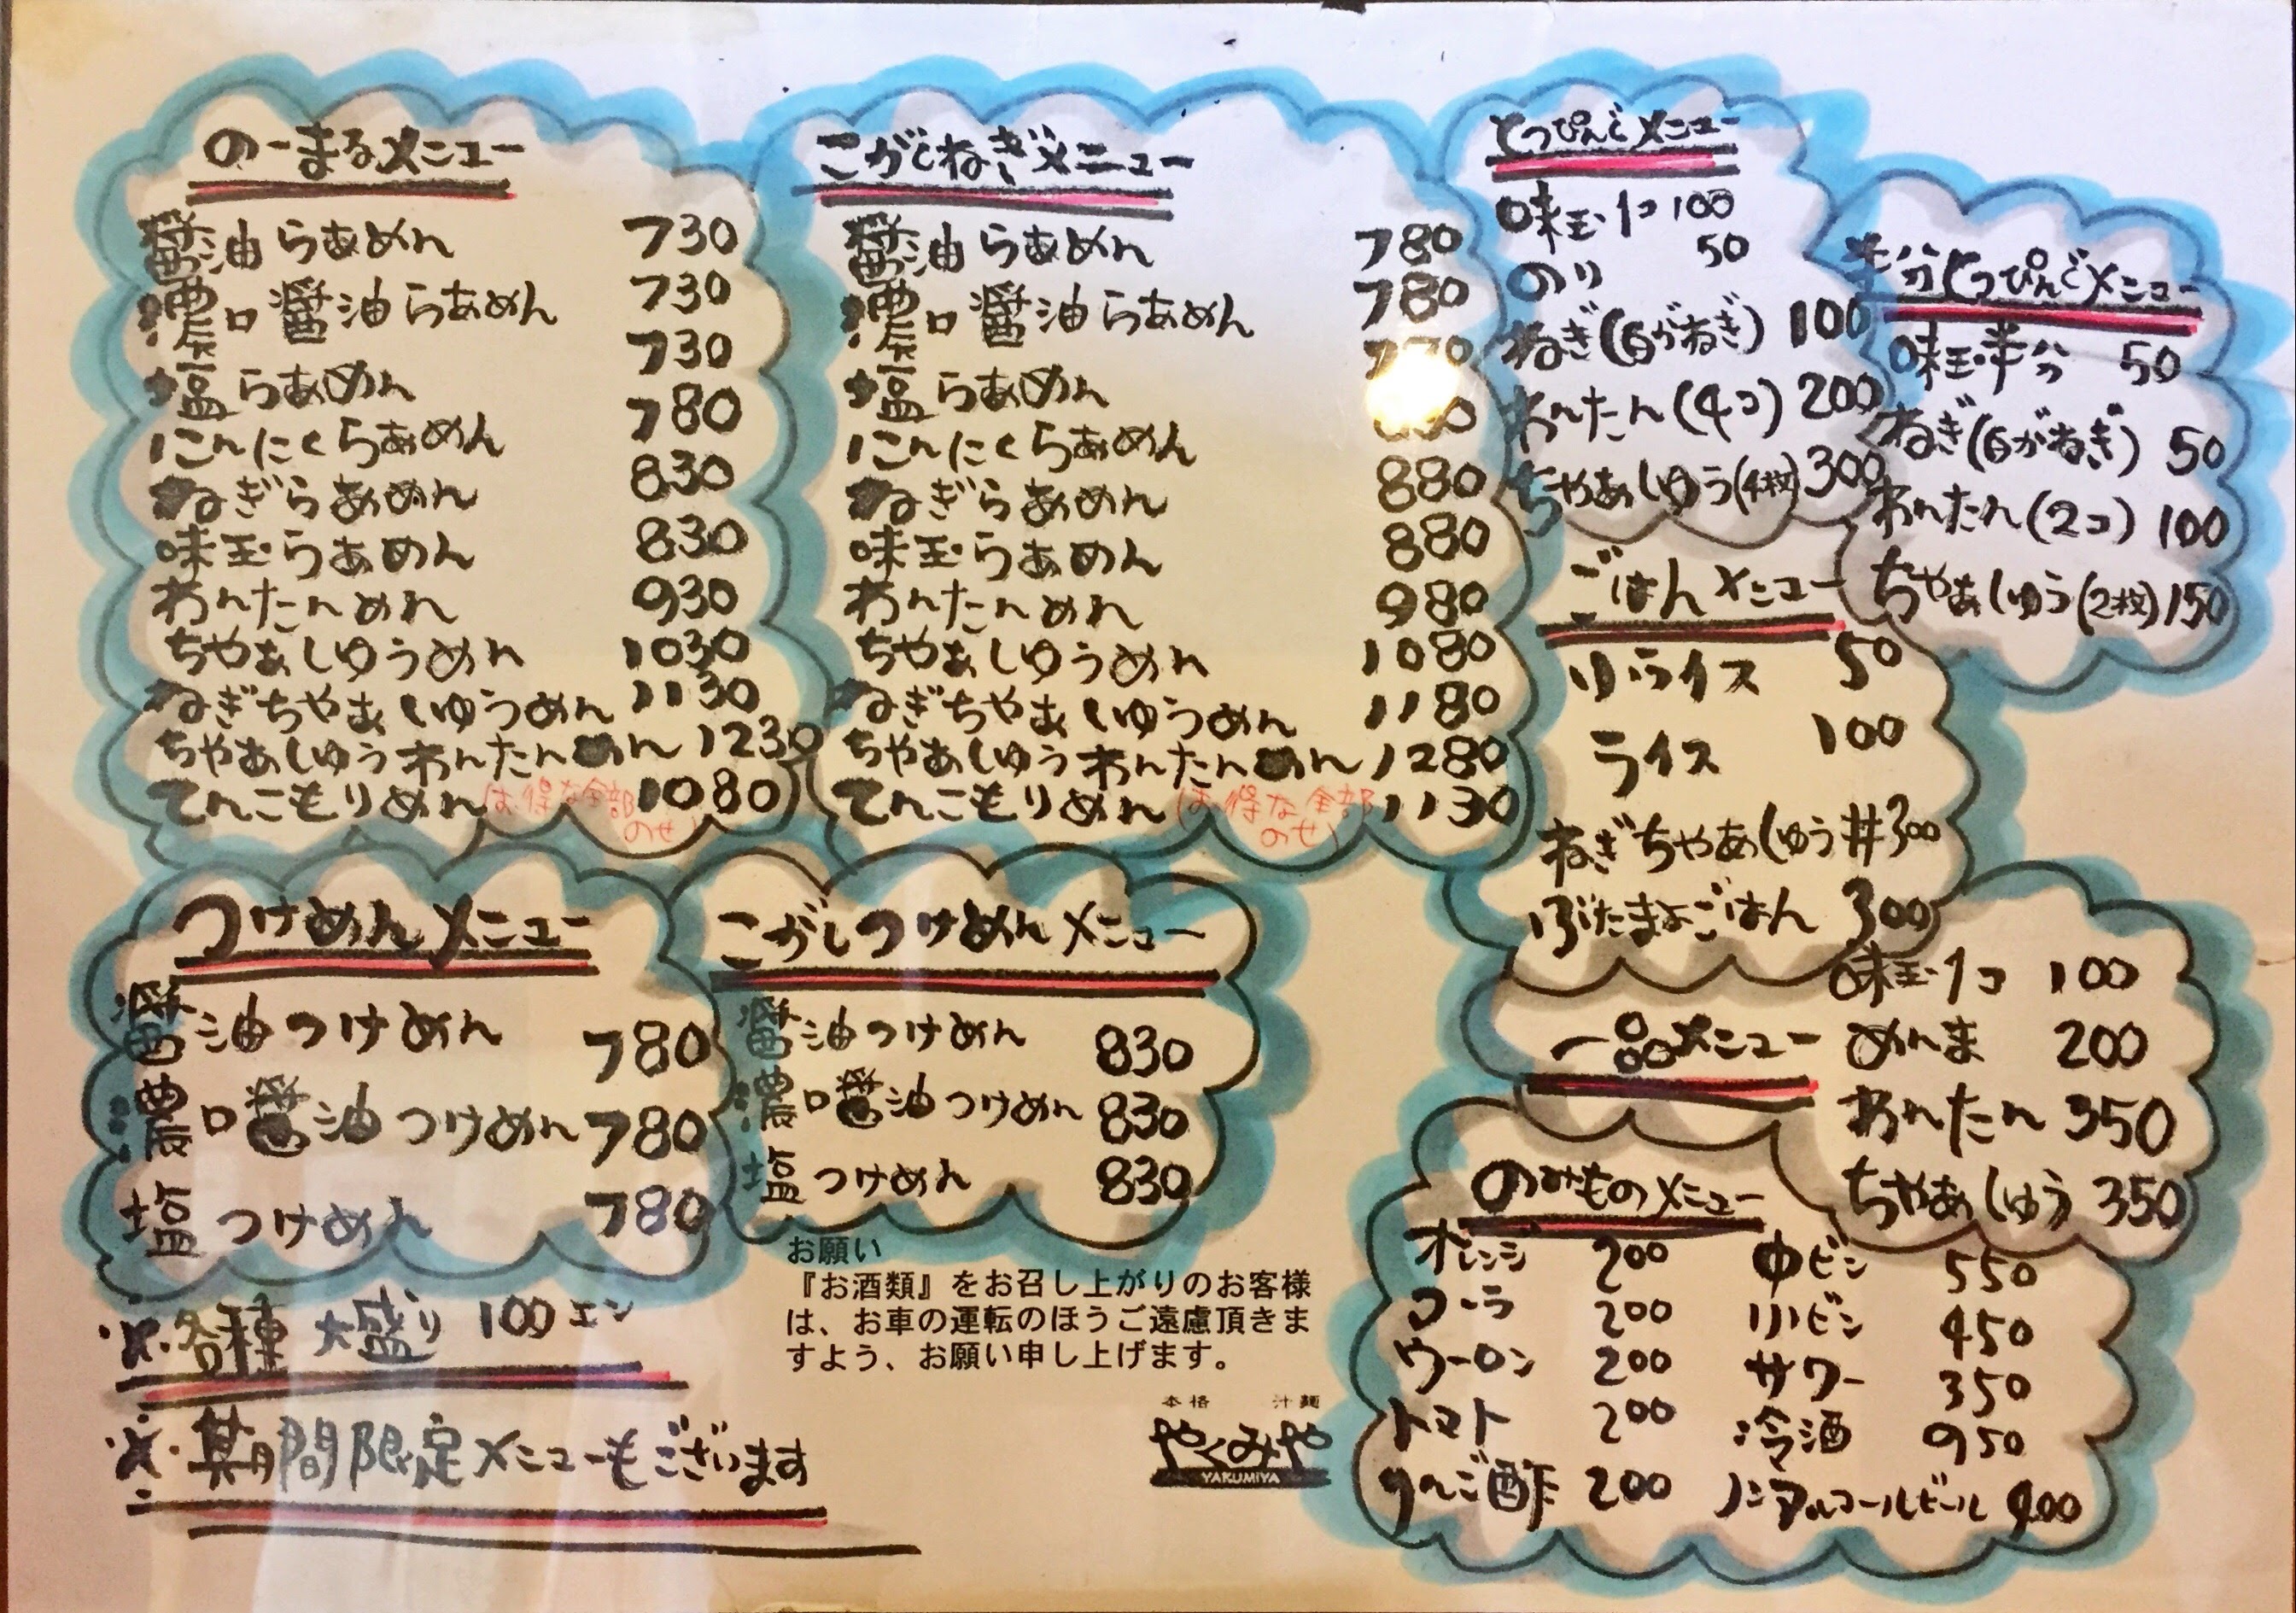 のーまるメニュー
醤油らあめん 730
濃口醤油らあめん 730
塩らあめん 730
にんにくらあめん 780
ねぎらあめん 830
味玉らあめん 830
わんたんめん 930
ちゃあしゅうめん 1030
ねぎちゃあしゅうめん 1130
ちゃあしゅうわんたんめん 1230
てんこもりめん(お得な全部のせ) 1080
こがしねぎメニュー
醤油らあめん 780
濃口醤油らあめん 780
塩らあめん
にんにくらあめん
ねぎらあめん 880
味玉らあめん 880
わんたんめん 980
ちゃあしゅうめん 1080
ねぎちゃあしゅうめん 1180
ちゃあしゅうわんたんめん 1280
てんこもりめん(お得な全部のせ) 1130
とっぴんぐメニュー
味玉1コ 100
のり 50
ねぎ(白がねぎ) 100
わんたん(4コ) 200
ちゃあしゅう(4枚) 300
半分とっぴんぐメニュー
味玉半分 50
ねぎ(白がねぎ) 50
わんたん(2コ) 100
ちゃあしゅう(2枚) 150
ごはんメニュー
小ライス 50
ライス 100
ねぎちゃあしゅう丼 300
ぶたまよごはん 300
つけめんメニュー
醤油つけめん 780
濃口醤油つけめん 780
塩つけめん 780
こがしつけめんメニュー
醤油つけめん 830
濃口醤油つけめん 830
塩つけめん 830
一品メニュー
味玉1コ 100
めんま 200
わんたん 350
ちゃあしゅう 350
のみものメニュー
オレンジ 200
コーラ 200
ウーロン 200
トマト 200
りんご酢 200
中ビン 550
小ビン 450
サワー 350
冷酒 950
ノンアルコールビール 400
※各種大盛り 100エン
※某期間限定メニューもございます
お願い
『お酒類』をお召し上がりのお客様
は、お車の運転のほうご遠慮頂きま
すよう、お願い申し上げます。
本格 汁麺
やくみや
YAKUMIYA